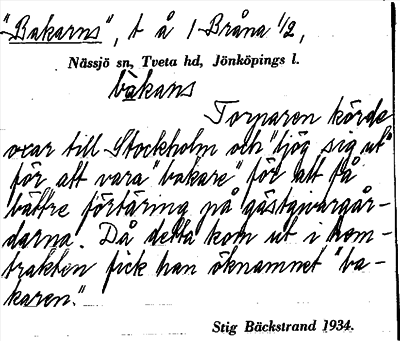 "Bakarns", t å 1 Bråna 1/2,
Nässjö sn, Tveta hd, Jönköpings l.
bàkans
Torparen körde
oxar till Stockholm och "ljög sig ut"
för att vara "bakare" för att få
bättre förtäring på gästgivargår-
darna. Då detta kom ut i hem-
trakten fick han öknamnet "ba-
karen."
Stig Bäckstrand 1934.